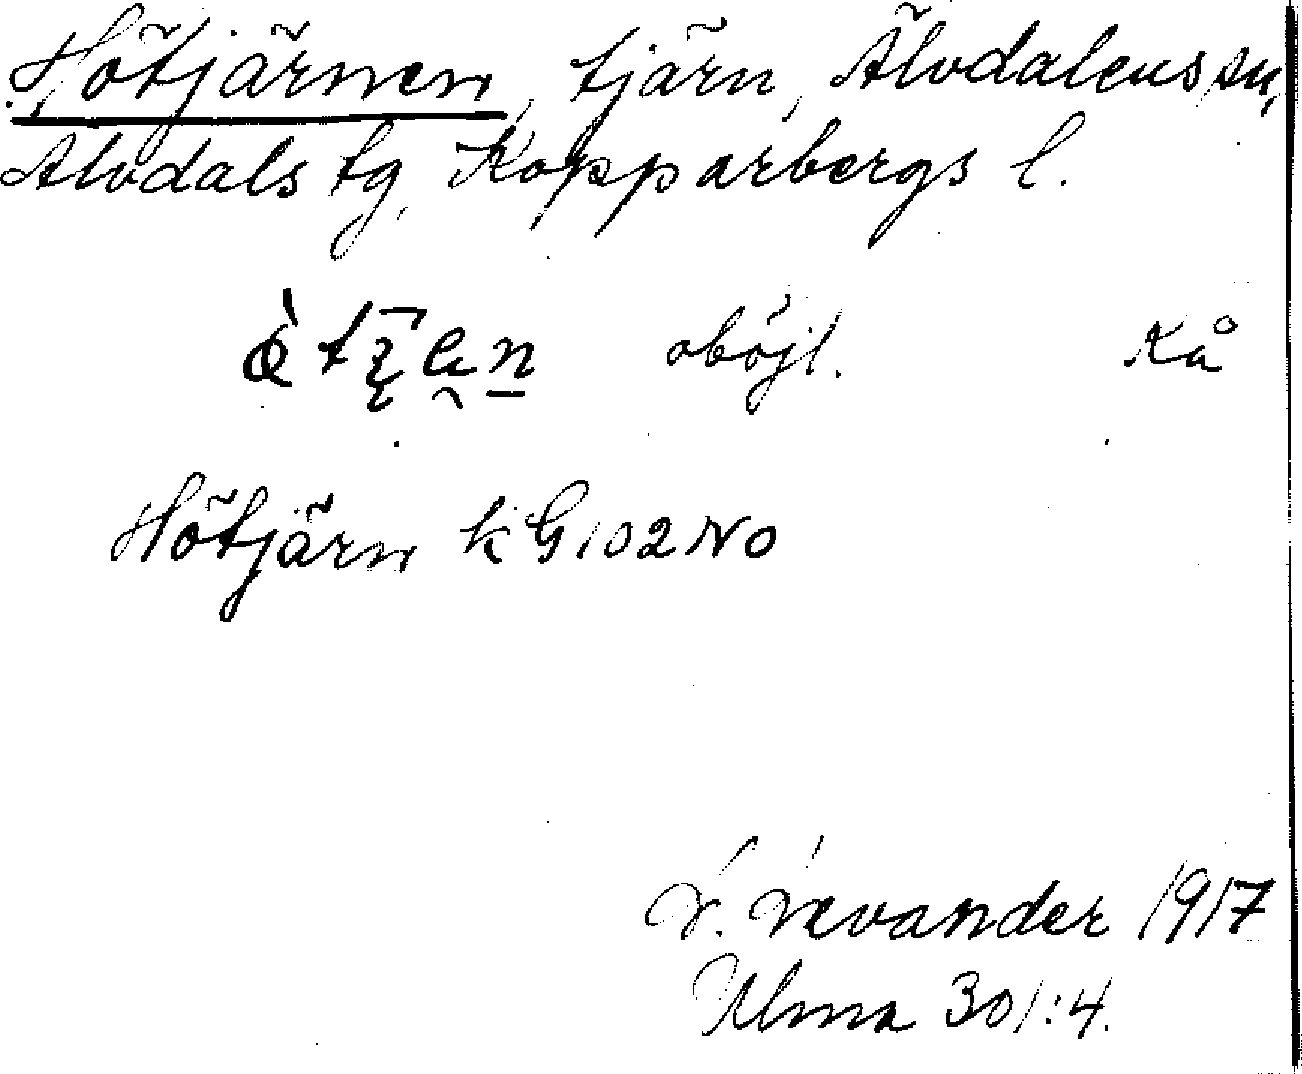 Hötjärnen, tjärn, Älvdalens sn,
Älvdals tg, Kopparbergs l.
oböjl. Kå
Hötjärn kG102NO
L. Levander 1917
Ulma 301:4.